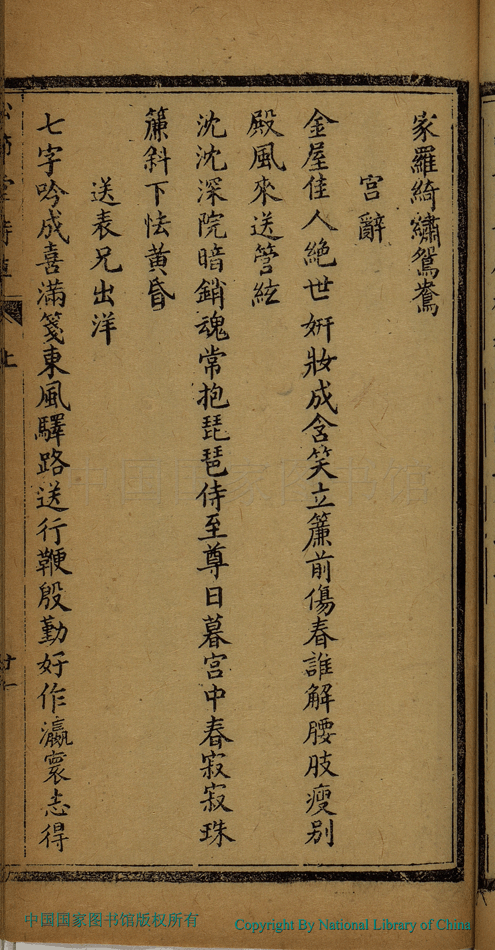 家羅綺繡鴛鴦
宮辭
金屋佳人絶世妍妝成含笑立簾前傷春誰解腰肢瘦别
殿風來送管絃
沈沈深院暗銷魂常抱琵琶侍至尊日暮宮中春寂寂珠
簾斜下怯黄昏
送表兄出洋
七字吟成喜滿箋東風驛路送行鞭殷勤好作瀛寰志得
上
廿一
中国国家图书馆
中国国家图书馆版权所有
Copyright By National Library of China